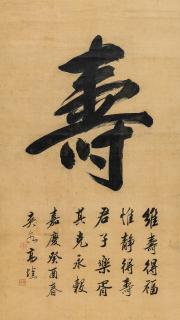 壽
維壽得福
惟靜得壽
君子樂胥
其克永毅
嘉慶癸酉春